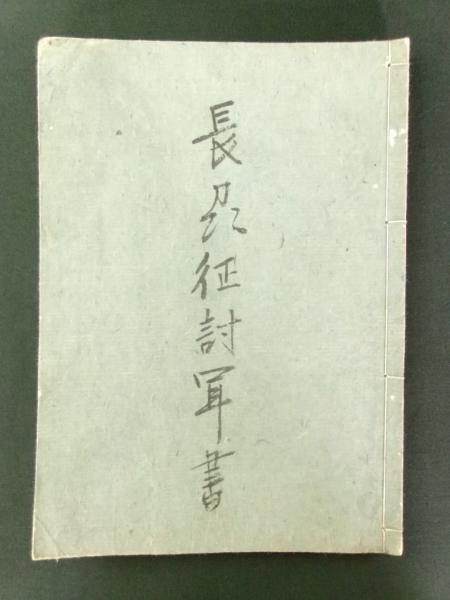 長州征討軍書